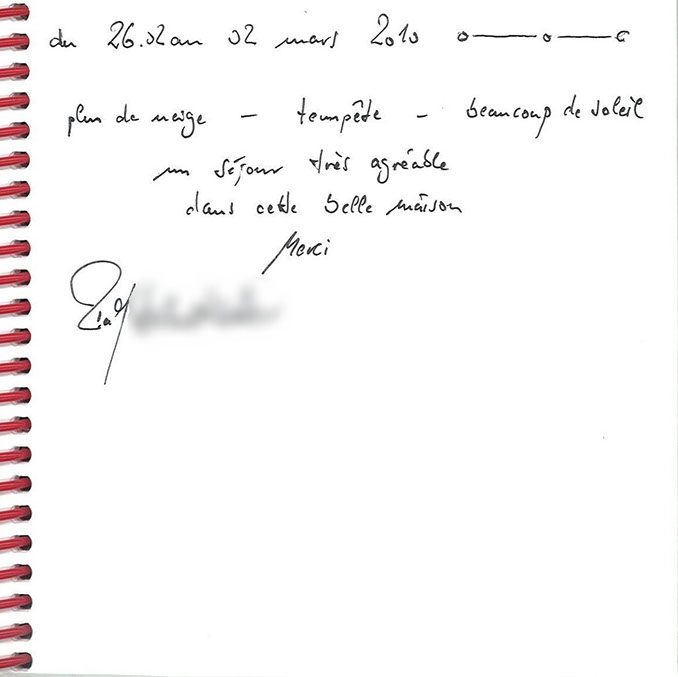 du 26.02 au 02 mars 2010
plus de neige - tempête - beaucoup de soleil
un séjour très agréable
dans cette belle maison
Merci